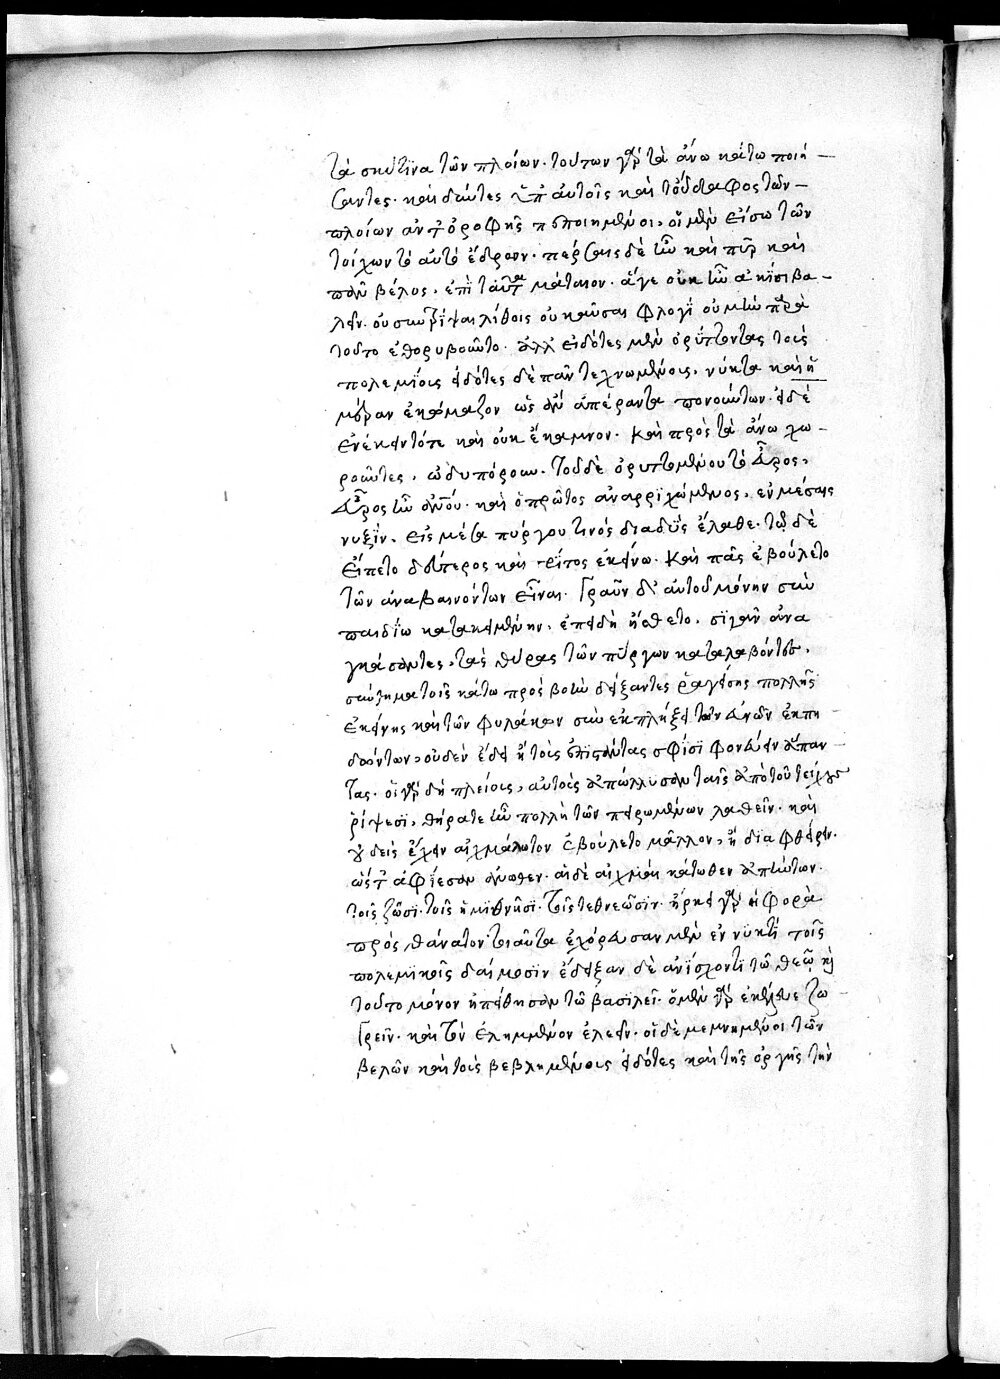 τὰ σκύτϊνα τῶν πλοίων. τούτων γὰρ τὰ ἄνω κάτω ποιή
σαντες. καὶ δώντες ὑπ' αὐτοῖς καὶ τοὔδαφος τῶν
πλοίων ἀντ' ὀροφῆς πεποιημένοι, οἱ μὲν εἴσω τῶν
τοίχων τὸ αὐτὸ ἔδρων. πέρσαις δὲ ἦν καὶ πῦρ καὶ
πολὺ βέλος. ἐπὶ ταῦτα μάταιον. ἅγε οὐκ ἦν
λεῖν. οὐ συντρίψαι λίθοις οὐ καῦσαι φλογΐ οὐ μὴν παρὰ
τοῦτο ἐθορυβοῦντο. ἀλλ' εἰδότες μὲν ὀρύττοντας τοὺς
πολεμΐους εἰδότες δὲ πᾶν τεχνωμένους. νύκτα καὶ ἡ
μέραν ἐκώμαζον ὡς οὖν ἀπέραντα πονούντων. οἱ δὲ
ἐνέκειντό τε καὶ οὐκ ἔκαμνον. καὶ πρὸς τὰ ἄνω χω
ροῦντες, ὡδυπόρουν. τοῦ δὲ ὀρυττομένου τὸ εὖρος,
εὖρος ἦν ἑνός. καὶ ὁ πρῶτος ἀναρριχώμενος, ἐν μέσαις
νυξΐν. εἰς μέτα πύργου τινὸς διαδὺς ἔλαθε. τῷ δὲ
εἵπετο δεύτερος καὶ τρίτος ἐκείνῳ. καὶ πᾶς ἐβούλετο
τῶν ἀναβαινόντων εἶναι. γραῦν δ' αὐτοῦ μόνην σὺν
παιδΐῳ κατακειμένην, ἐπειδὴ ᾔσθετο. σϊγᾶν ἀνα
γκάσαντες, τὰς θύρας τῶν πύργων καταλαβόντες,
σύνθημα τοῖς κάτω πρὸς βοὴν δείξαντες ῥαγείσης πολλῆς
ἐκείνης καὶ τῶν φυλάκων σὺν ἐκπλήξει τῶν εὐνῶν ἐκπη
δώντων, οὐδὲν ἔδει ἢ τοὺς ἐπιόντας σφίσϊ φονεύειν ἅπαν
τας. οἱ γὰρ δὴ πλείους, αὐτοὺς ἀπώλλυσαν ταῖς ἀπὸ τοῦ τείχους
ῥίψεσϊ, θήρα τε ἦν πολλὴ τῶν πειρωμένων λαθεῖν. καὶ
οὐδεὶς ἔχειν αἰχμάλωτον ἐβούλετο μᾶλλον, ἢ δϊαφθείρειν.
ὥστ' ἀφΐεσαν ἄνωθεν. αἱ δὲ αἰχμαὶ κάτωθεν ἀπήντων.
τοῖς ζῶσϊ. τοῖς ἡμϊθνῆσϊ. τοῖς τεθνεῶσϊν. ἤρκει γὰρ ἡ φορὰ
πρὸς θάνατον. τοιαῦτα ἐχόρευσαν μὲν ἐν νυκτὶ τοῖς
πολεμϊκοῖς δαίμοσϊν ἔδειξαν δὲ ἀνΐσχοντϊ τῷ θεῷ καὶ
τοῦτο μόνον ἠπείθησαν τῷ βασϊλεῖ. ὁ μὲν γὰρ ἐκέλευε ζω
γρεῖν. καὶ τὸν εἰλημμένον ἐλεεῖν. οἱ δὲ μεμνημένοι τῶν
βελῶν καὶ τοὺς βεβλημένους εἰδότες καὶ τῆς ὀργῆς τὴν